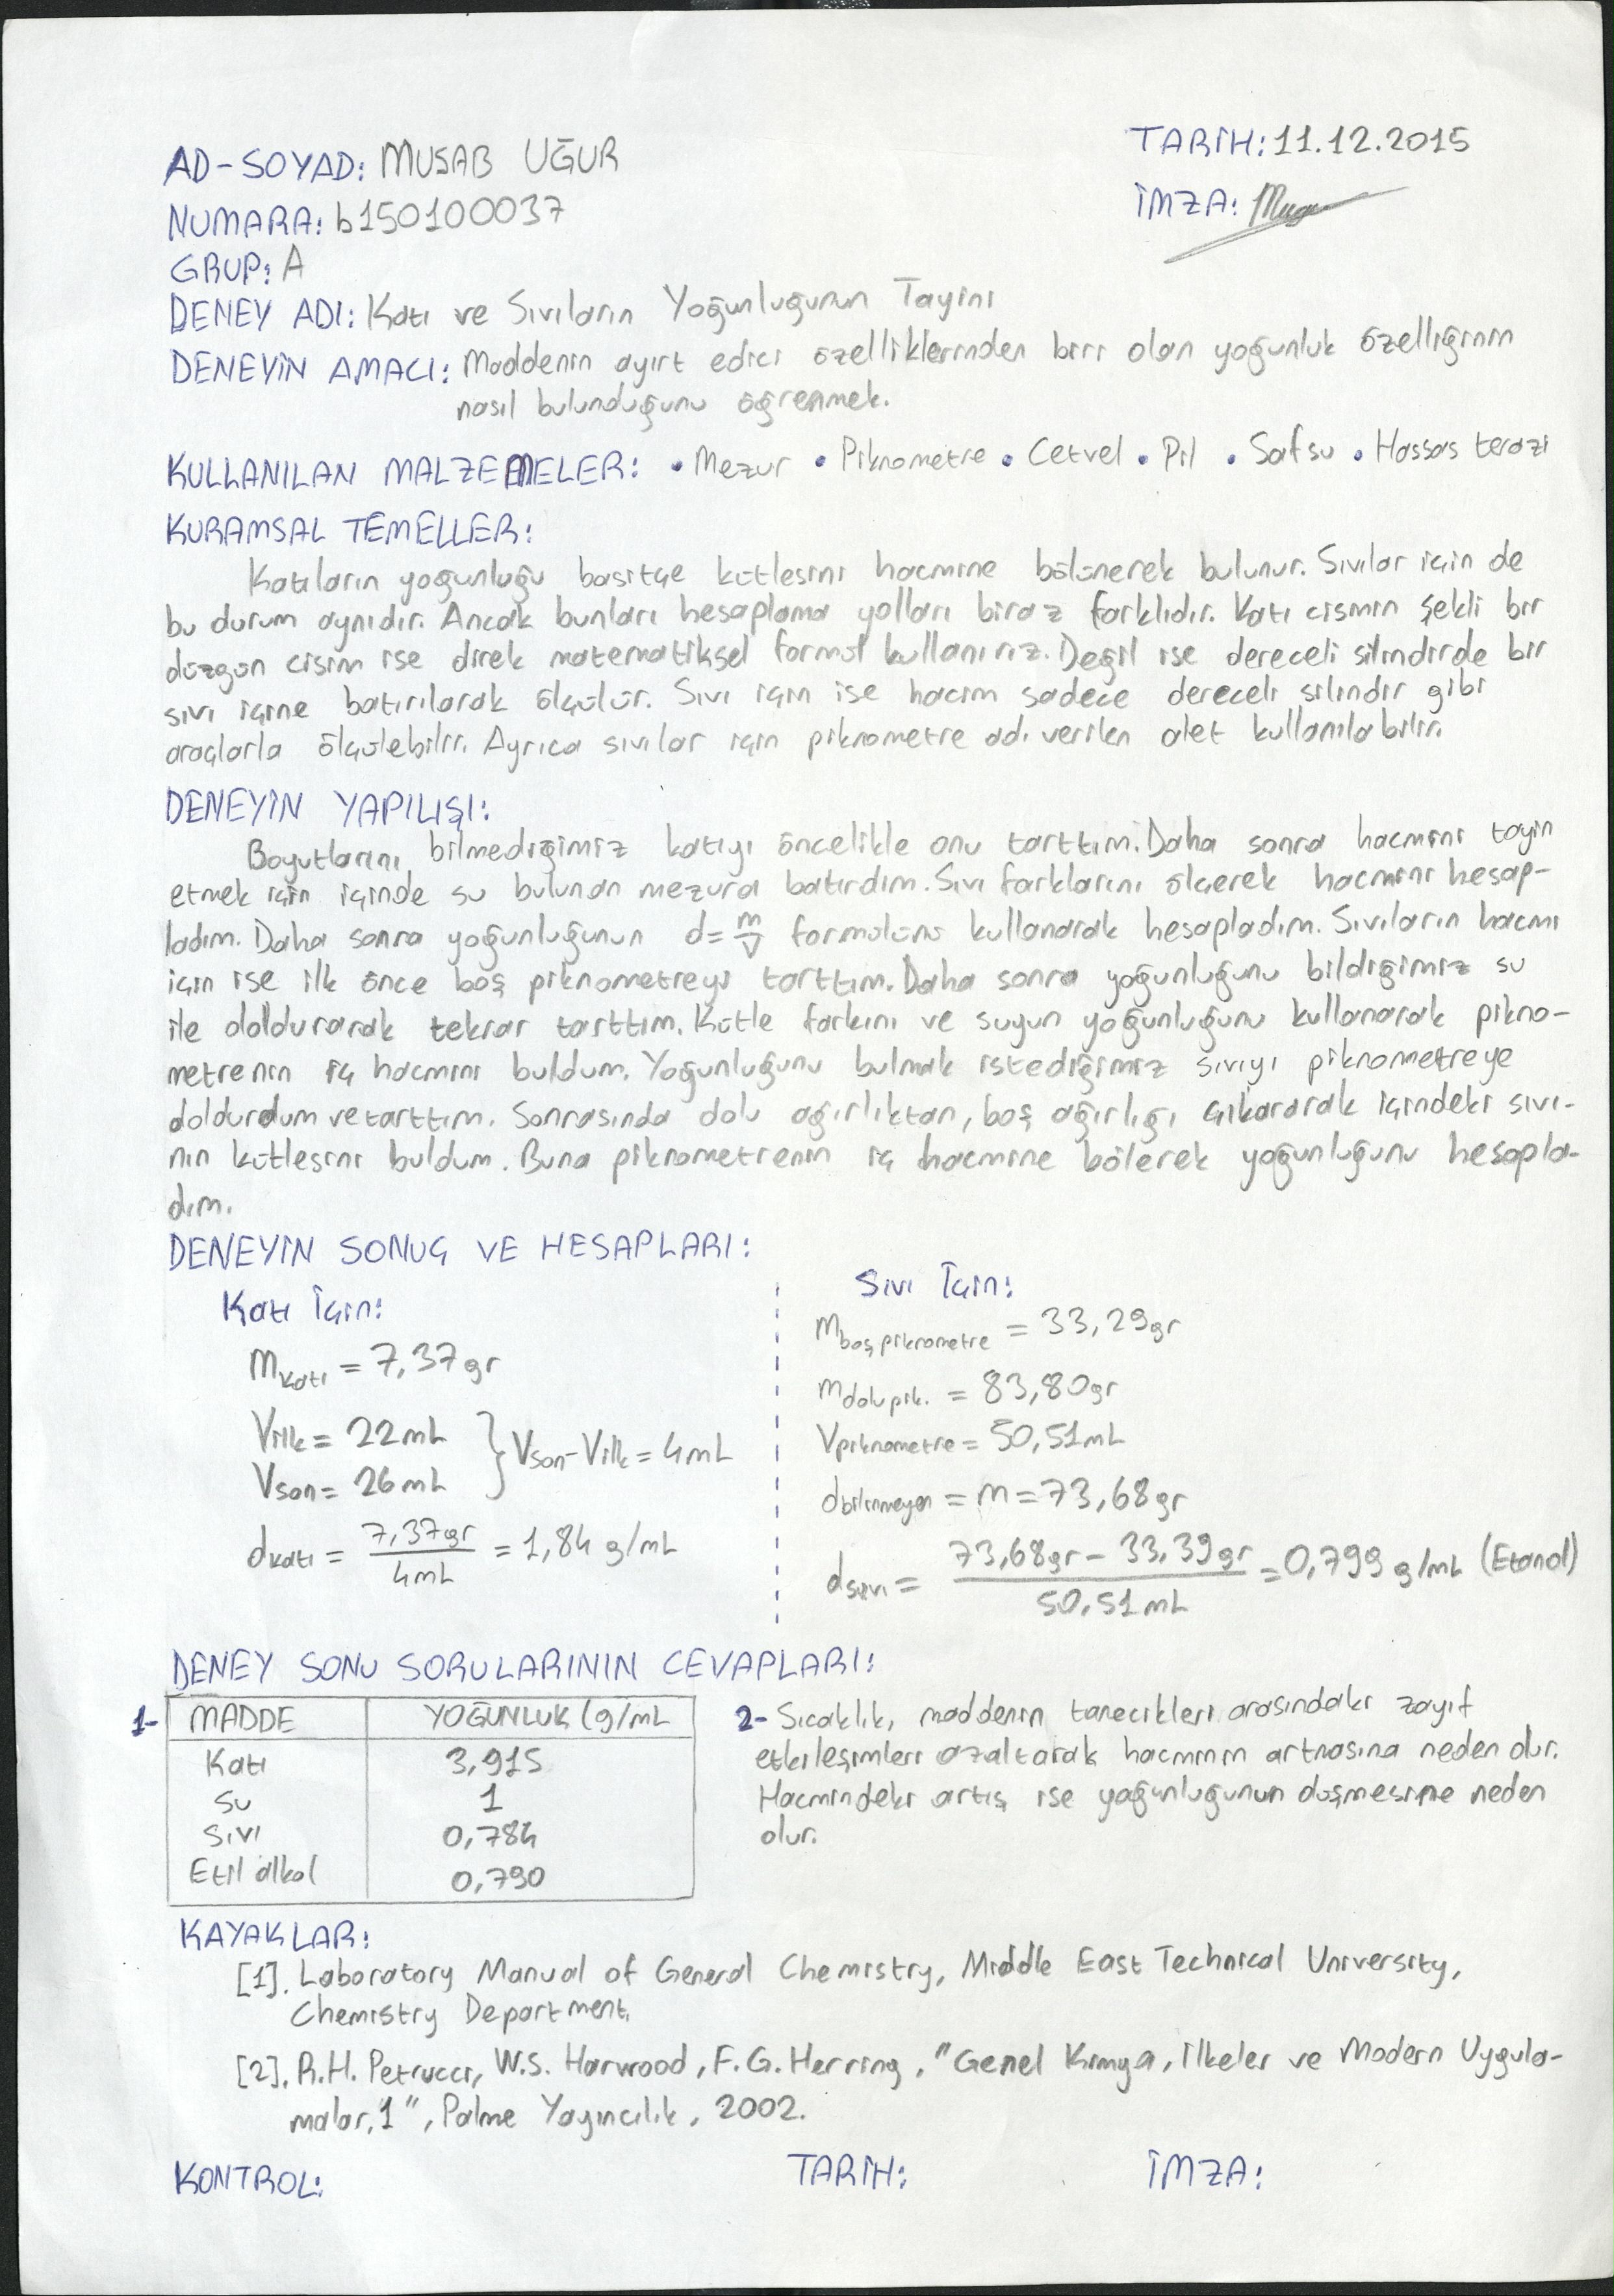 AD-SOYAD: MUSAB UĞUR
TARİH: 11.12.2015
NUMARA: b150100037
İMZA:
GRUP: A
DENEY ADI: Katı ve Sıvıların Yoğunluğunun Tayini
DENEYİN AMACI: Maddenin ayırt edici özelliklerinden biri olan yoğunluk özelliğinin
nasıl bulunduğunu öğrenmek.
KULLANILAN MALZEMELER: • Mezur • Piknometre • Cetvel • Pil • Safsu • Hassas terazi
KURAMSAL TEMELLER:
Katıların yoğunluğu basitçe kütlesini hacmine bölünerek bulunur. Sıvılar için de
bu durum aynıdır. Ancak bunları hesaplama yolları biraz farklıdır. Katı cismin şekli bir
düzgün cisim ise direk matematiksel formül kullanırız. Değil ise dereceli silindirde bir
sıvı içine batırılarak ölçülür. Sıvı için ise hacim sadece dereceli silindir gibi
araçlarla ölçülebilir. Ayrıca sıvılar için piknometre adı verilen alet kullanılabilir.
DENEYİN YAPILIŞI:
Boyutlarını bilmediğimiz katıyı öncelikle onu tarttım. Daha sonra hacmini tayin
etmek için içinde su bulunan mezura batırdım. Sıvı farklarını ölçerek hacmini hesap-
ladım. Daha sonra yoğunluğunun d=m/v formülünü kullanarak hesapladım. Sıvıların hacmi
için ise ilk önce boş piknometreyi tarttım. Daha sonra yoğunluğunu bildiğimiz su
ile doldurarak tekrar tarttım. Kütle farkını ve suyun yoğunluğunu kullanarak pikno-
metrenin iç hacmini buldum. Yoğunluğunu bulmak istediğimiz sıvıyı piknometreye
doldurdum ve tarttım. Sonrasında dolu ağırlıktan, boş ağırlığı çıkararak içindeki sıvı-
nın kütlesini buldum. Buna piknometrenin iç hacmine bölerek yoğunluğunu hesapla-
dım.
DENEYİN SONUÇ VE HESAPLARI:
Katı İçin:
mkatı = 7,37gr
Vilk = 22mL
Vson = 26mL
} Vson-Vilk = 4mL
dkatı = 7,37gr / 4mL = 1,84 g/mL
Sıvı İçin:
mboş piknometre = 33,29gr
mdolu pik. = 83,80gr
Vpiknometre = 50,51mL
dbilinmeyen = m = 73,68gr
dsıvı = 73,68gr - 33,39gr / 50,51mL = 0,799 g/mL (Etanol)
DENEY SONU SORULARININ CEVAPLARI:
1- MADDE YOĞUNLUK (g/mL
Katı 3,915
Su 1
Sıvı 0,784
Etil alkol 0,790
2- Sıcaklık, maddenin tanecikleri arasındaki zayıf
etkileşimleri azaltarak hacminin artmasına neden olur.
Hacmindeki artış ise yoğunluğunun düşmesine neden
olur.
KAYAKLAR:
[1]. Laboratory Manual of General Chemistry, Middle East Technical University,
Chemistry Department.
[2]. R.H. Petrucci, W.S. Harwood, F.G. Herring, "Genel Kimya, İlkeler ve Modern Uygula-
malar, 1", Palme Yayıncılık, 2002.
KONTROL: TARİH: İMZA: